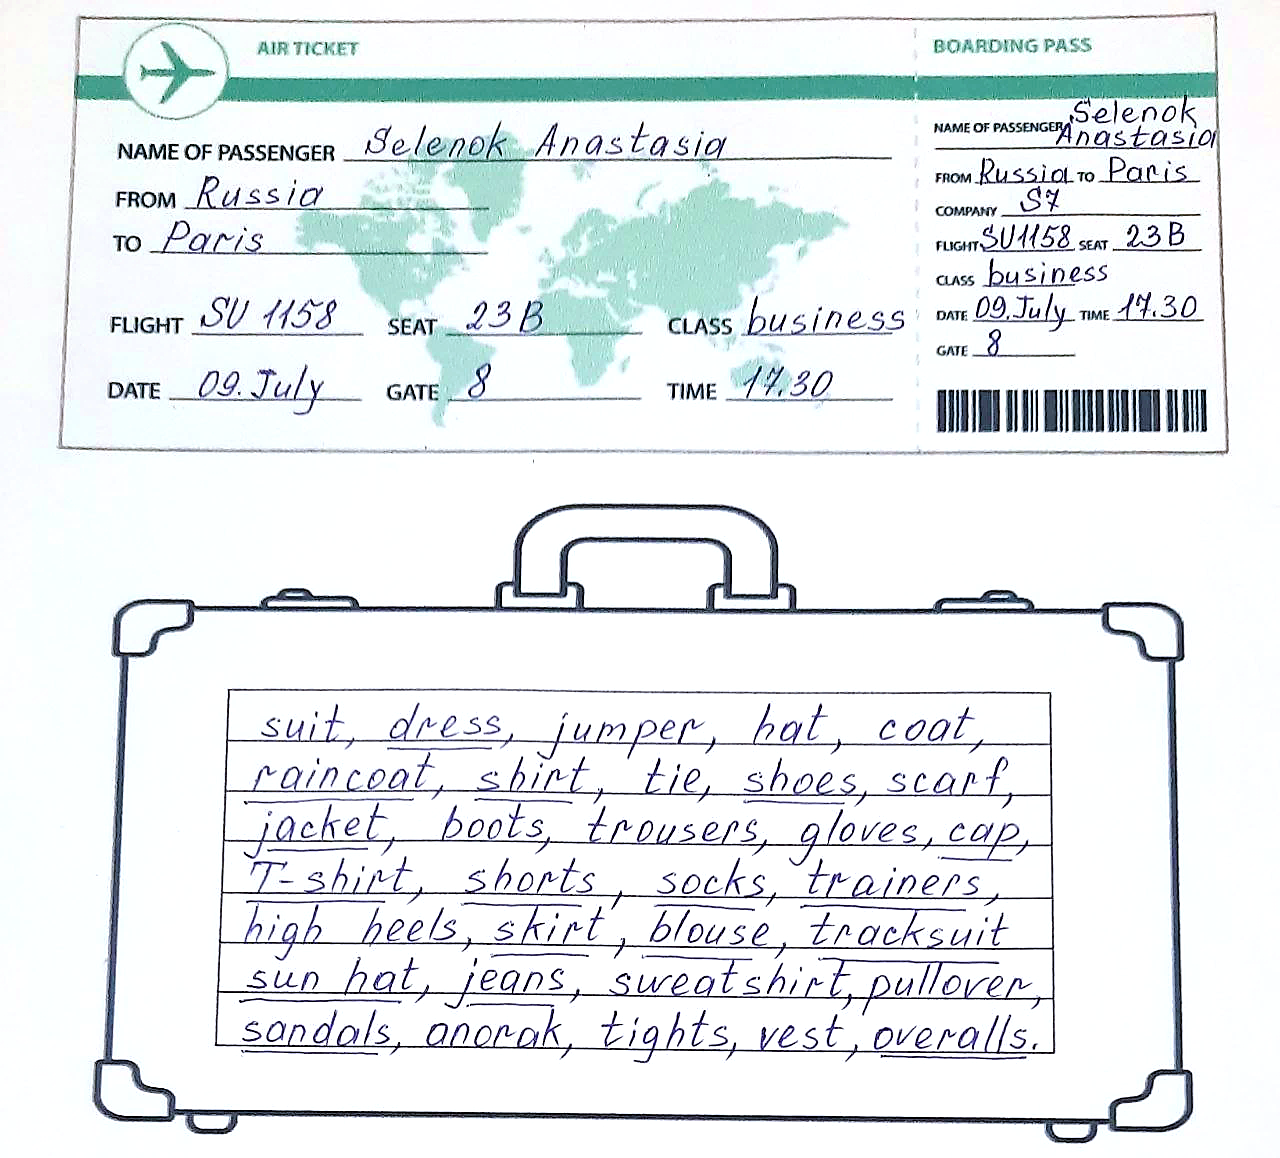 AIR TICKET
NAME OF PASSENGER Selenok Anastasia
FROM Russia
TO Paris
FLIGHT SU 1158 SEAT 23B CLASS business
DATE 09. July GATE 8 TIME 17.30
BOARDING PASS
NAME OF PASSENGER Selenok
Anastasia
FROM Russia TO Paris
COMPANY S7
FLIGHT SU1158 SEAT 23B
CLASS business
DATE 09. July TIME 17.30
GATE 8
suit, dress, jumper, hat, coat,
raincoat, shirt, tie, shoes, scarf,
jacket, boots, trousers, gloves, cap,
T-shirt, shorts, socks, trainers,
high heels, skirt, blouse, tracksuit
sun hat, jeans, sweatshirt, pullover,
sandals, anorak, tights, vest, overalls.